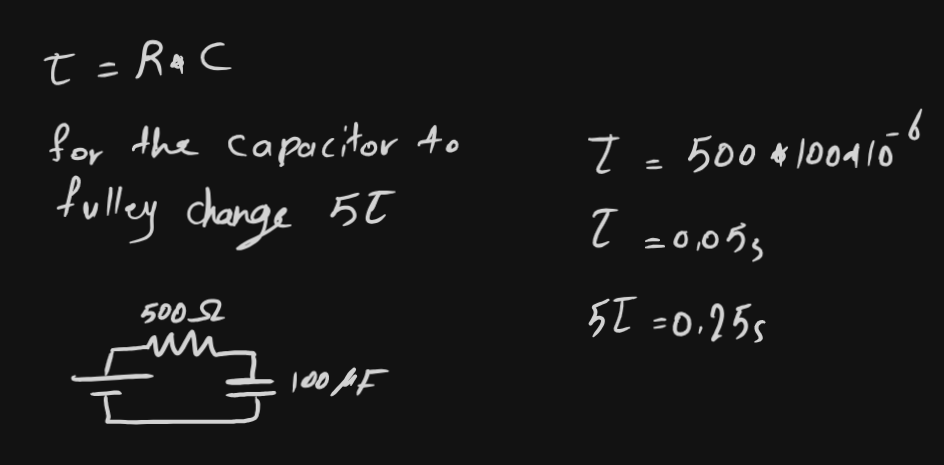 τ = R * C
for the capacitor to
fulley change 5τ
500Ω
100μF
τ = 500 * 100*10⁻⁶
τ = 0,05s
5τ = 0,25s